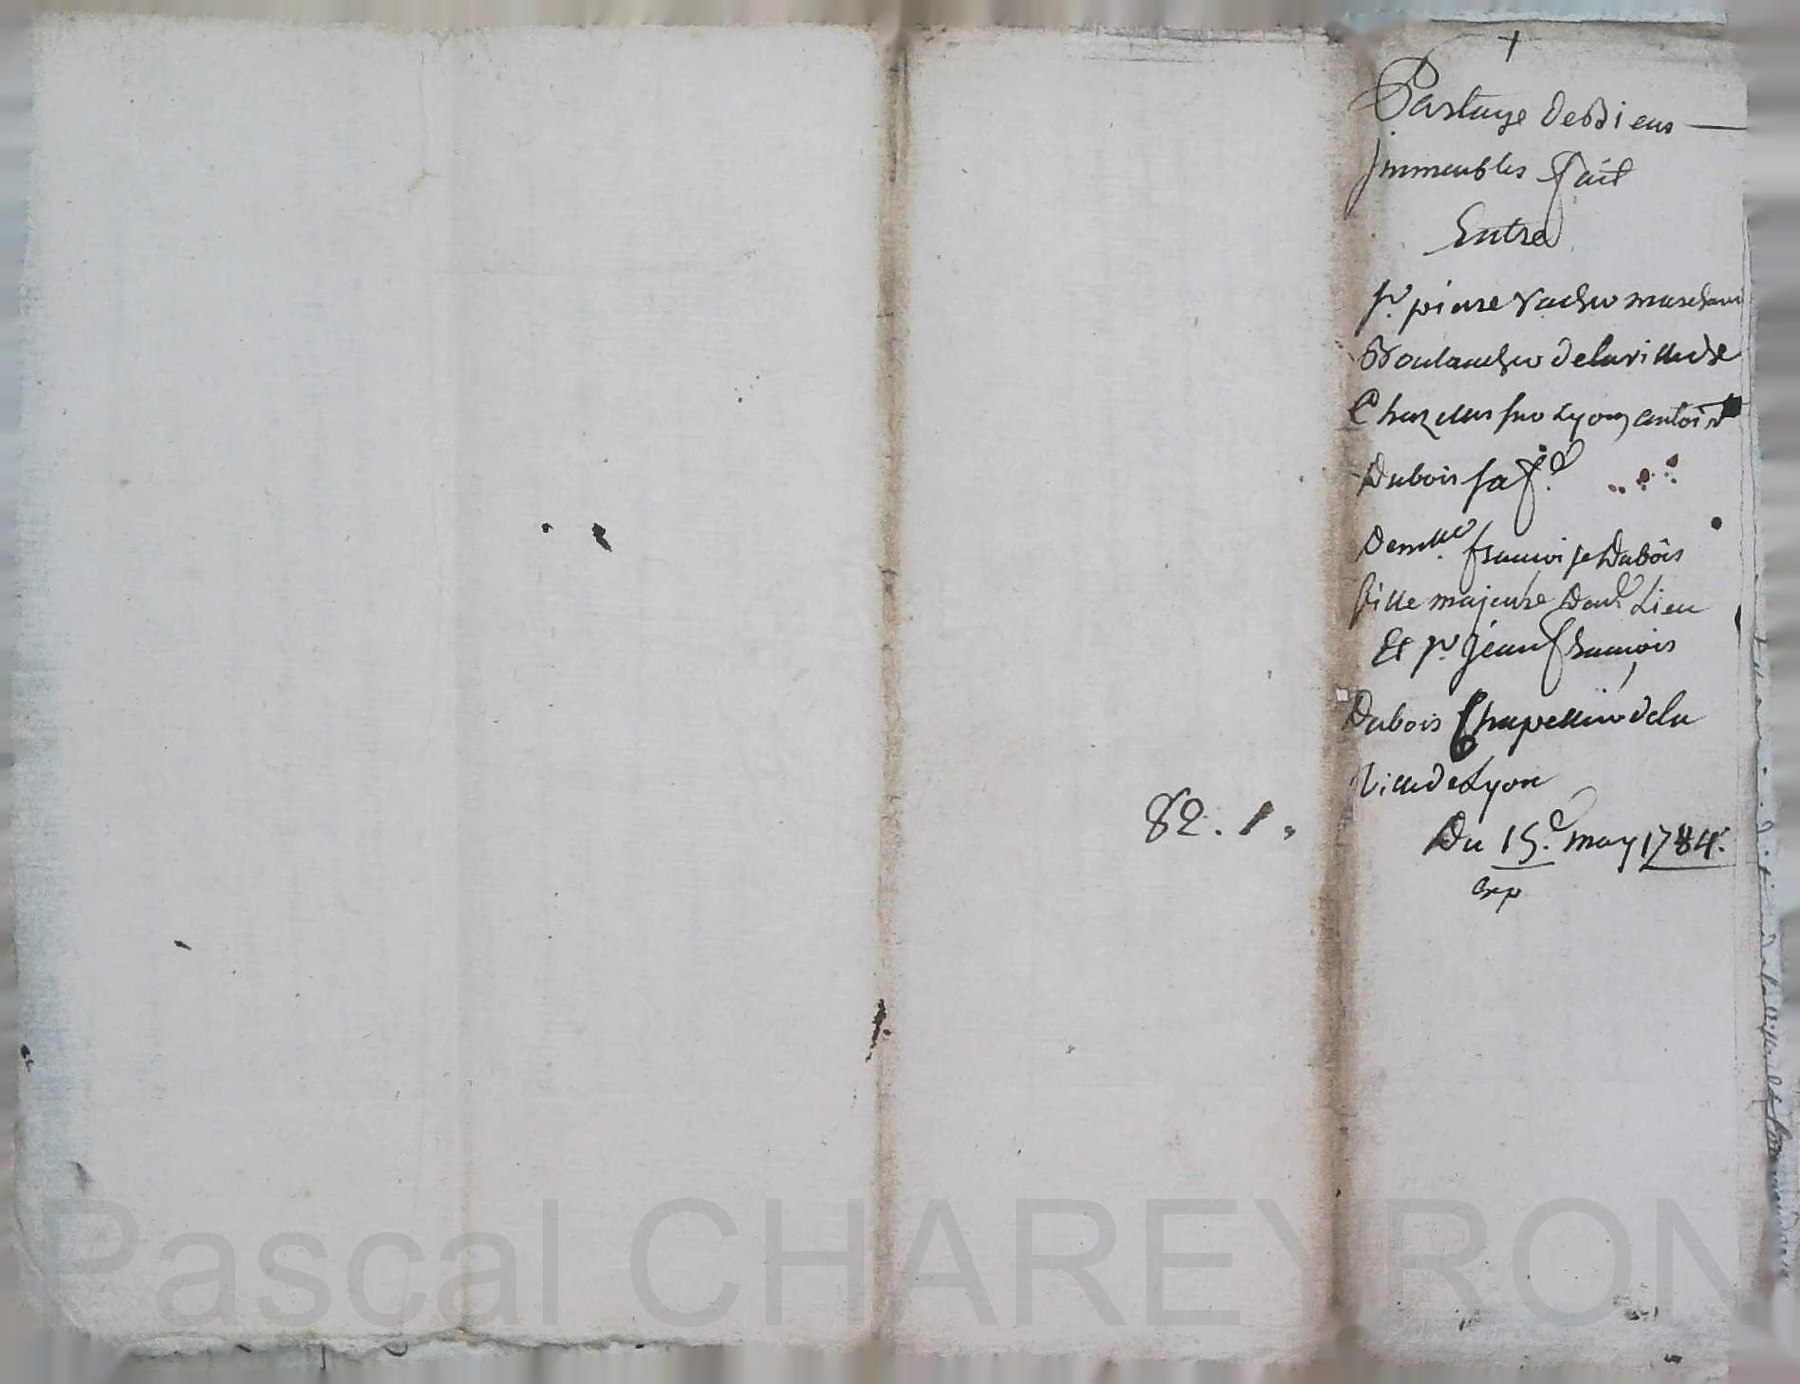 +
Partage de Biens
Immeubles fait
Entre
Sr. pierre Vacher marchand
Boulancher de la ville de
Chazelles sur Lyon, antoin
Dubois sa fe.
Demlle. francoise Dubois
fille majeure dud. Lieu
Et Sr. jean francois
Dubois Chapellier de la
Ville de Lyon
Du 15e. may 1784.
Exp
82. 1.
Pascal CHAREYRON